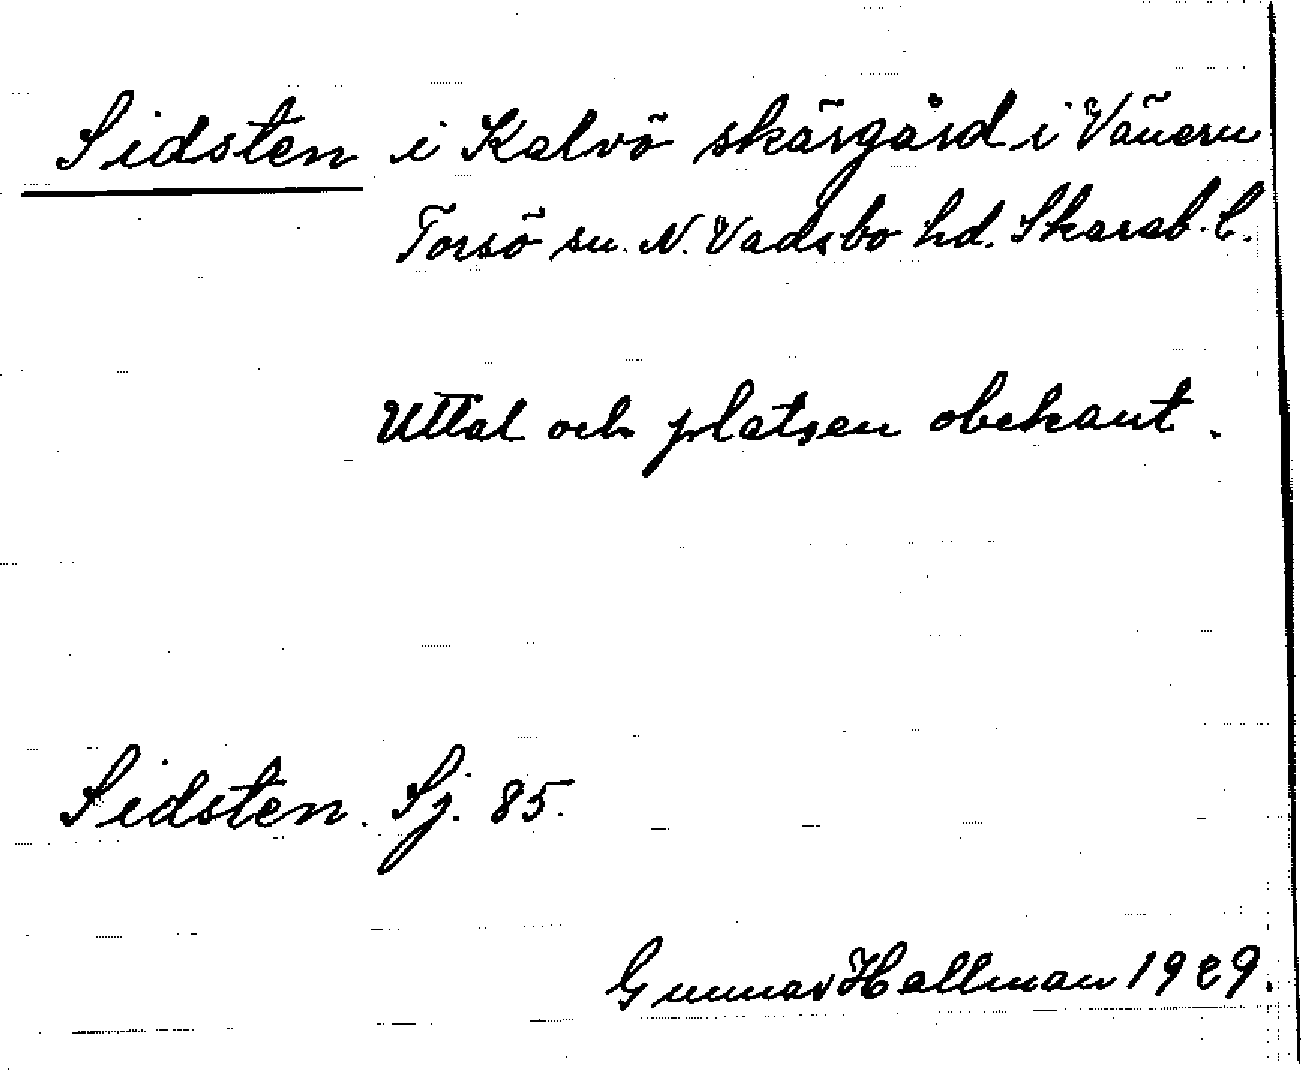 Sidsten i Kalvö skärgård i Vänern
Torsö sn. N. Vadsbo hd. Skarab. l.
Uttal och platsen obekant.
Sidsten. Sj. 85.
Gunnar Hallman 1929.